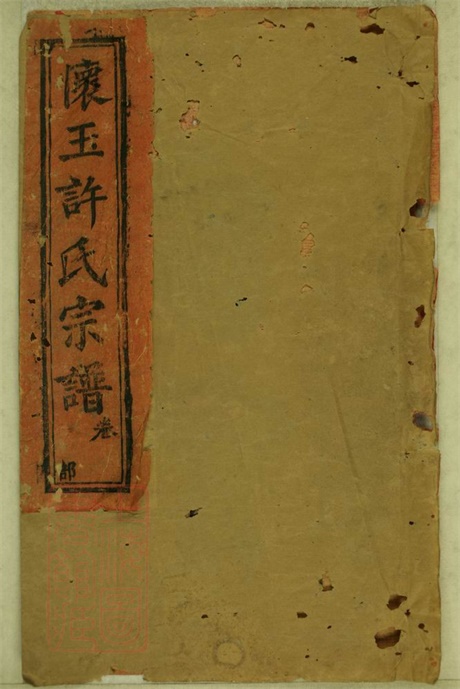 懷玉許氏宗譜
卷
部